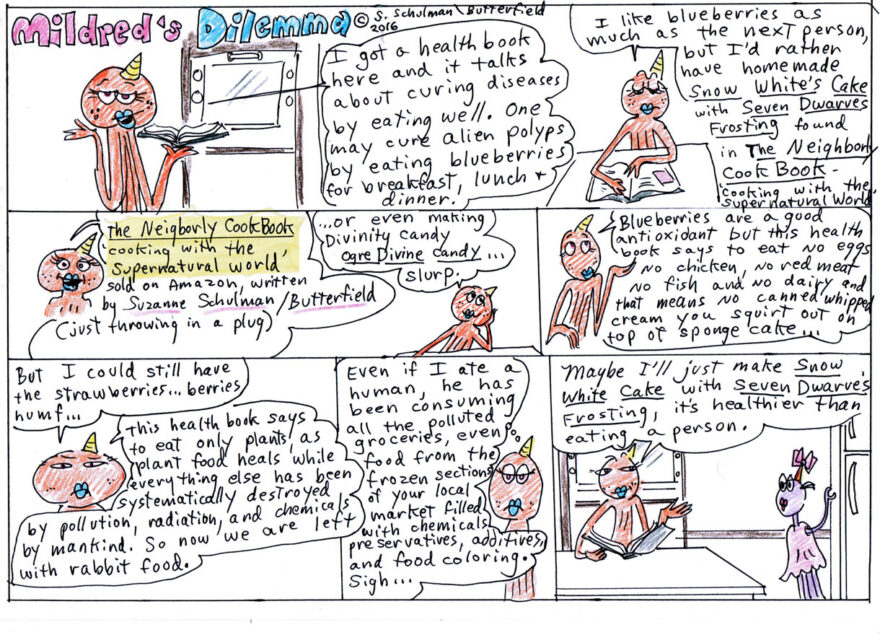 Mildred's Dilemma © S. Schulman\Butterfield
2016
I got a health book
here and it talks
about curing diseases
by eating well. One
may cure alien polyps
by eating blueberries
for breakfast, lunch +
dinner.
I like blueberries as
much as the next person,
but I'd rather
have homemade
Snow White's Cake
with Seven Dwarves
Frosting found
in The Neighborly
CookBook -
'cooking with the
supernatural World'
The Neigborly CookBook
cooking with the
'supernatural world'
sold on Amazon, written
by Suzanne Schulman/Butterfield
(just throwing in a plug)
...or even making
Divinity candy
ogre Divine candy...
slurp.
Blueberries are a good
antioxidant but this health
book says to eat no eggs
no chicken, no red meat
no fish and no dairy and
that means no canned whipped
cream you squirt out on
top of sponge cake...
But I could still have
the strawberries... berries
humf...
This health book says
to eat only plants, as
plant food heals while
everything else has been
systematically destroyed
by pollution, radiation, and chemicals
by mankind. So now we are left
with rabbit food.
Even if I ate a
human, he has
been consuming
all the polluted
groceries, even
food from the
frozen sections
of your local
market filled
with chemicals
preservatives, additives,
and food coloring.
Sigh...
Maybe I'll just make Snow
White Cake with Seven Dwarves
Frosting, it's healthier than
eating a person.